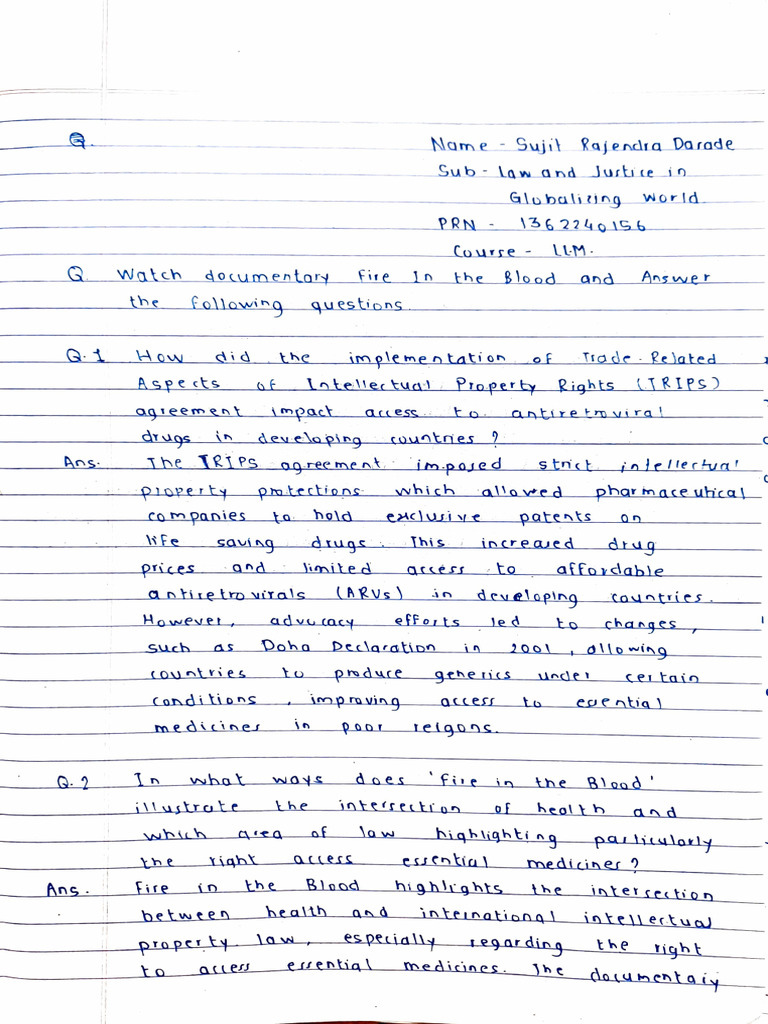 Q.
Name - Sujit Rajendra Darade
Sub - Law and Justice in
Globalizing World
PRN - 1362240156
Course - LLM.
Q Watch documentary Fire In the Blood and Answer
the following questions
Q.1 How did the implementation of Trade-Related
Aspects of Intellectual Property Rights (TRIPS)
agreement impact access to antiretroviral
drugs in developing countries?
Ans. The TRIPS agreement imposed strict intellectual
property protections which allowed pharmaceutical
companies to hold exclusive patents on
life saving drugs. This increased drug
prices and limited access to affordable
antiretrovirals (ARVs) in developing countries.
However, advocacy efforts led to changes,
such as Doha Declaration in 2001, allowing
countries to produce generics under certain
conditions, improving access to essential
medicines in poor reigons.
Q.2 In what ways does 'Fire in the Blood'
illustrate the intersection of health and
which area of law highlighting particularly
the right access essential medicines?
Ans. Fire in the Blood highlights the intersection
between health and international intellectual
property law, especially regarding the right
to access essential medicines. The documentary